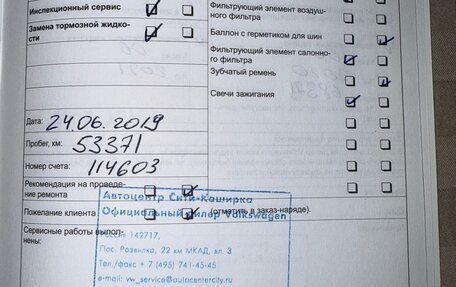 Инспекционный сервис
Замена тормозной жидко-
сти
Фильтрующий элемент воздуш-
ного фильтра
Баллон с герметиком для шин
Фильтрующий элемент салонно-
го фильтра
Зубчатый ремень
Свечи зажигания
Дата: 24.06.2019
Пробег, км: 53371
Номер счета: 114603
Рекомендация на проведе-
ние ремонта
Пожелание клиента (отметить в заказ-наряде).
Сервисные работы выпол-
нены:
Автоцентр Сити-Каширка
Официальный дилер Volkswagen
Россия 142717,
Пос. Развилка, 22 км МКАД, вл. 3
Тел./факс + 7 (495) 741-45-45
e-mail: vw_service@autocentercity.ru